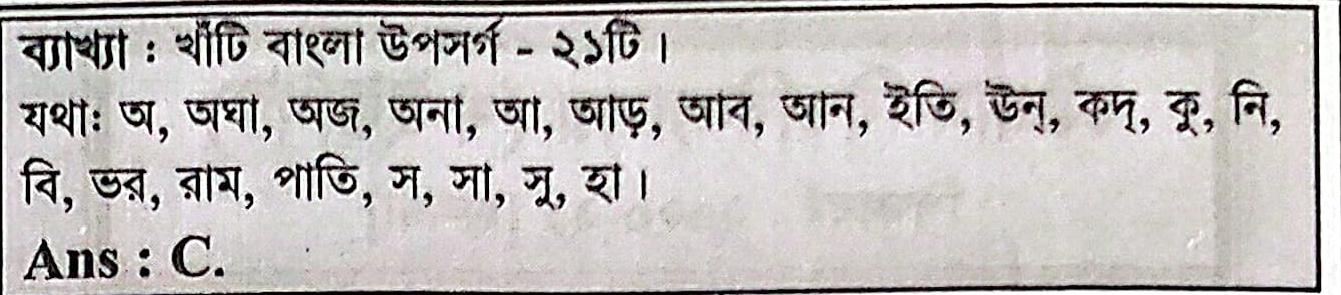 ব্যাখ্যা : খাঁটি বাংলা উপসর্গ - ২১টি।
যথাঃ অ, অঘা, অজ, অনা, আ, আড়, আব, আন, ইতি, উন্, কদ্, কু, নি,
বি, ভর, রাম, পাতি, স, সা, সু, হা।
Ans : C.